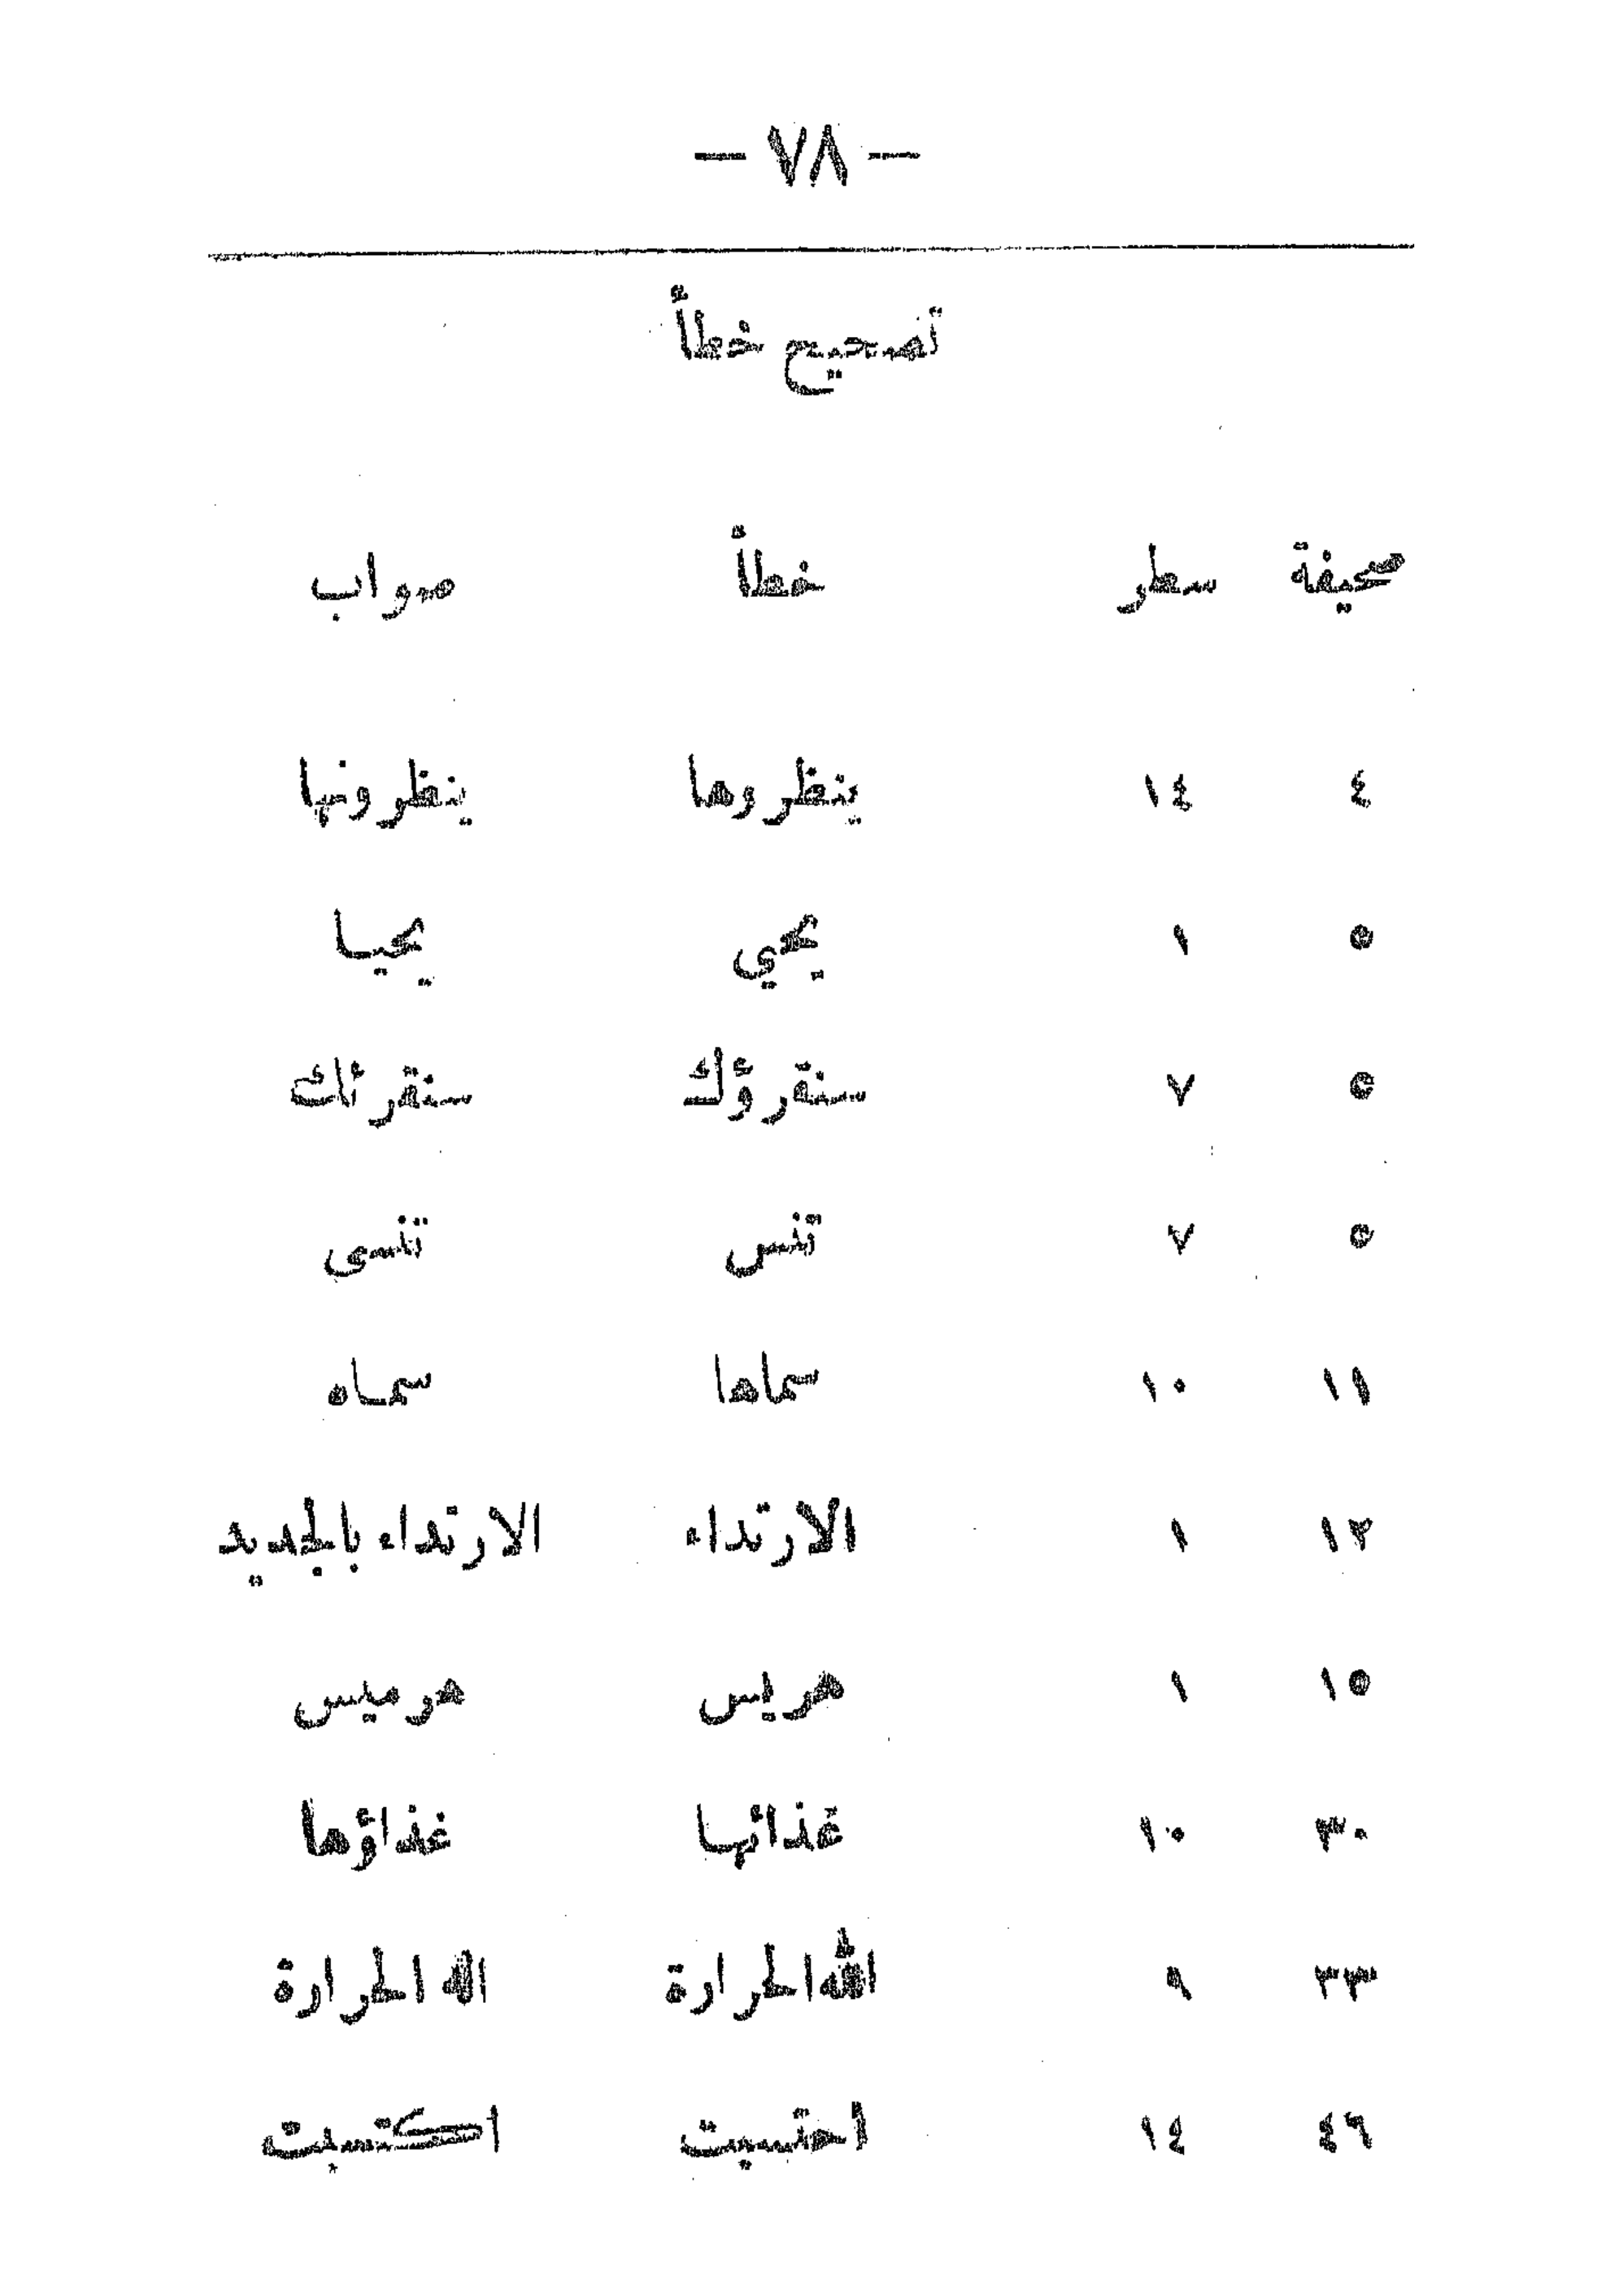 — ٧٨ —
تصحيح خطأ
صحيفة سطر خطأ صواب
٤ ١٤ ينظروها ينظرونها
٥ ١ يحيي يحيا
٥ ٧ سنقرؤك سنقرئك
٥ ٧ تنس تنسى
١١ ١٠ سماها سماه
١٢ ١ الارتداء الارتداء بالجديد
١٥ ١ هريس هرميس
٣٠ ١٠ غذائها غذاؤها
٣٣ ٩ الله الحرارة اله الحرارة
٤٦ ١٤ احتسبت اكتسبت